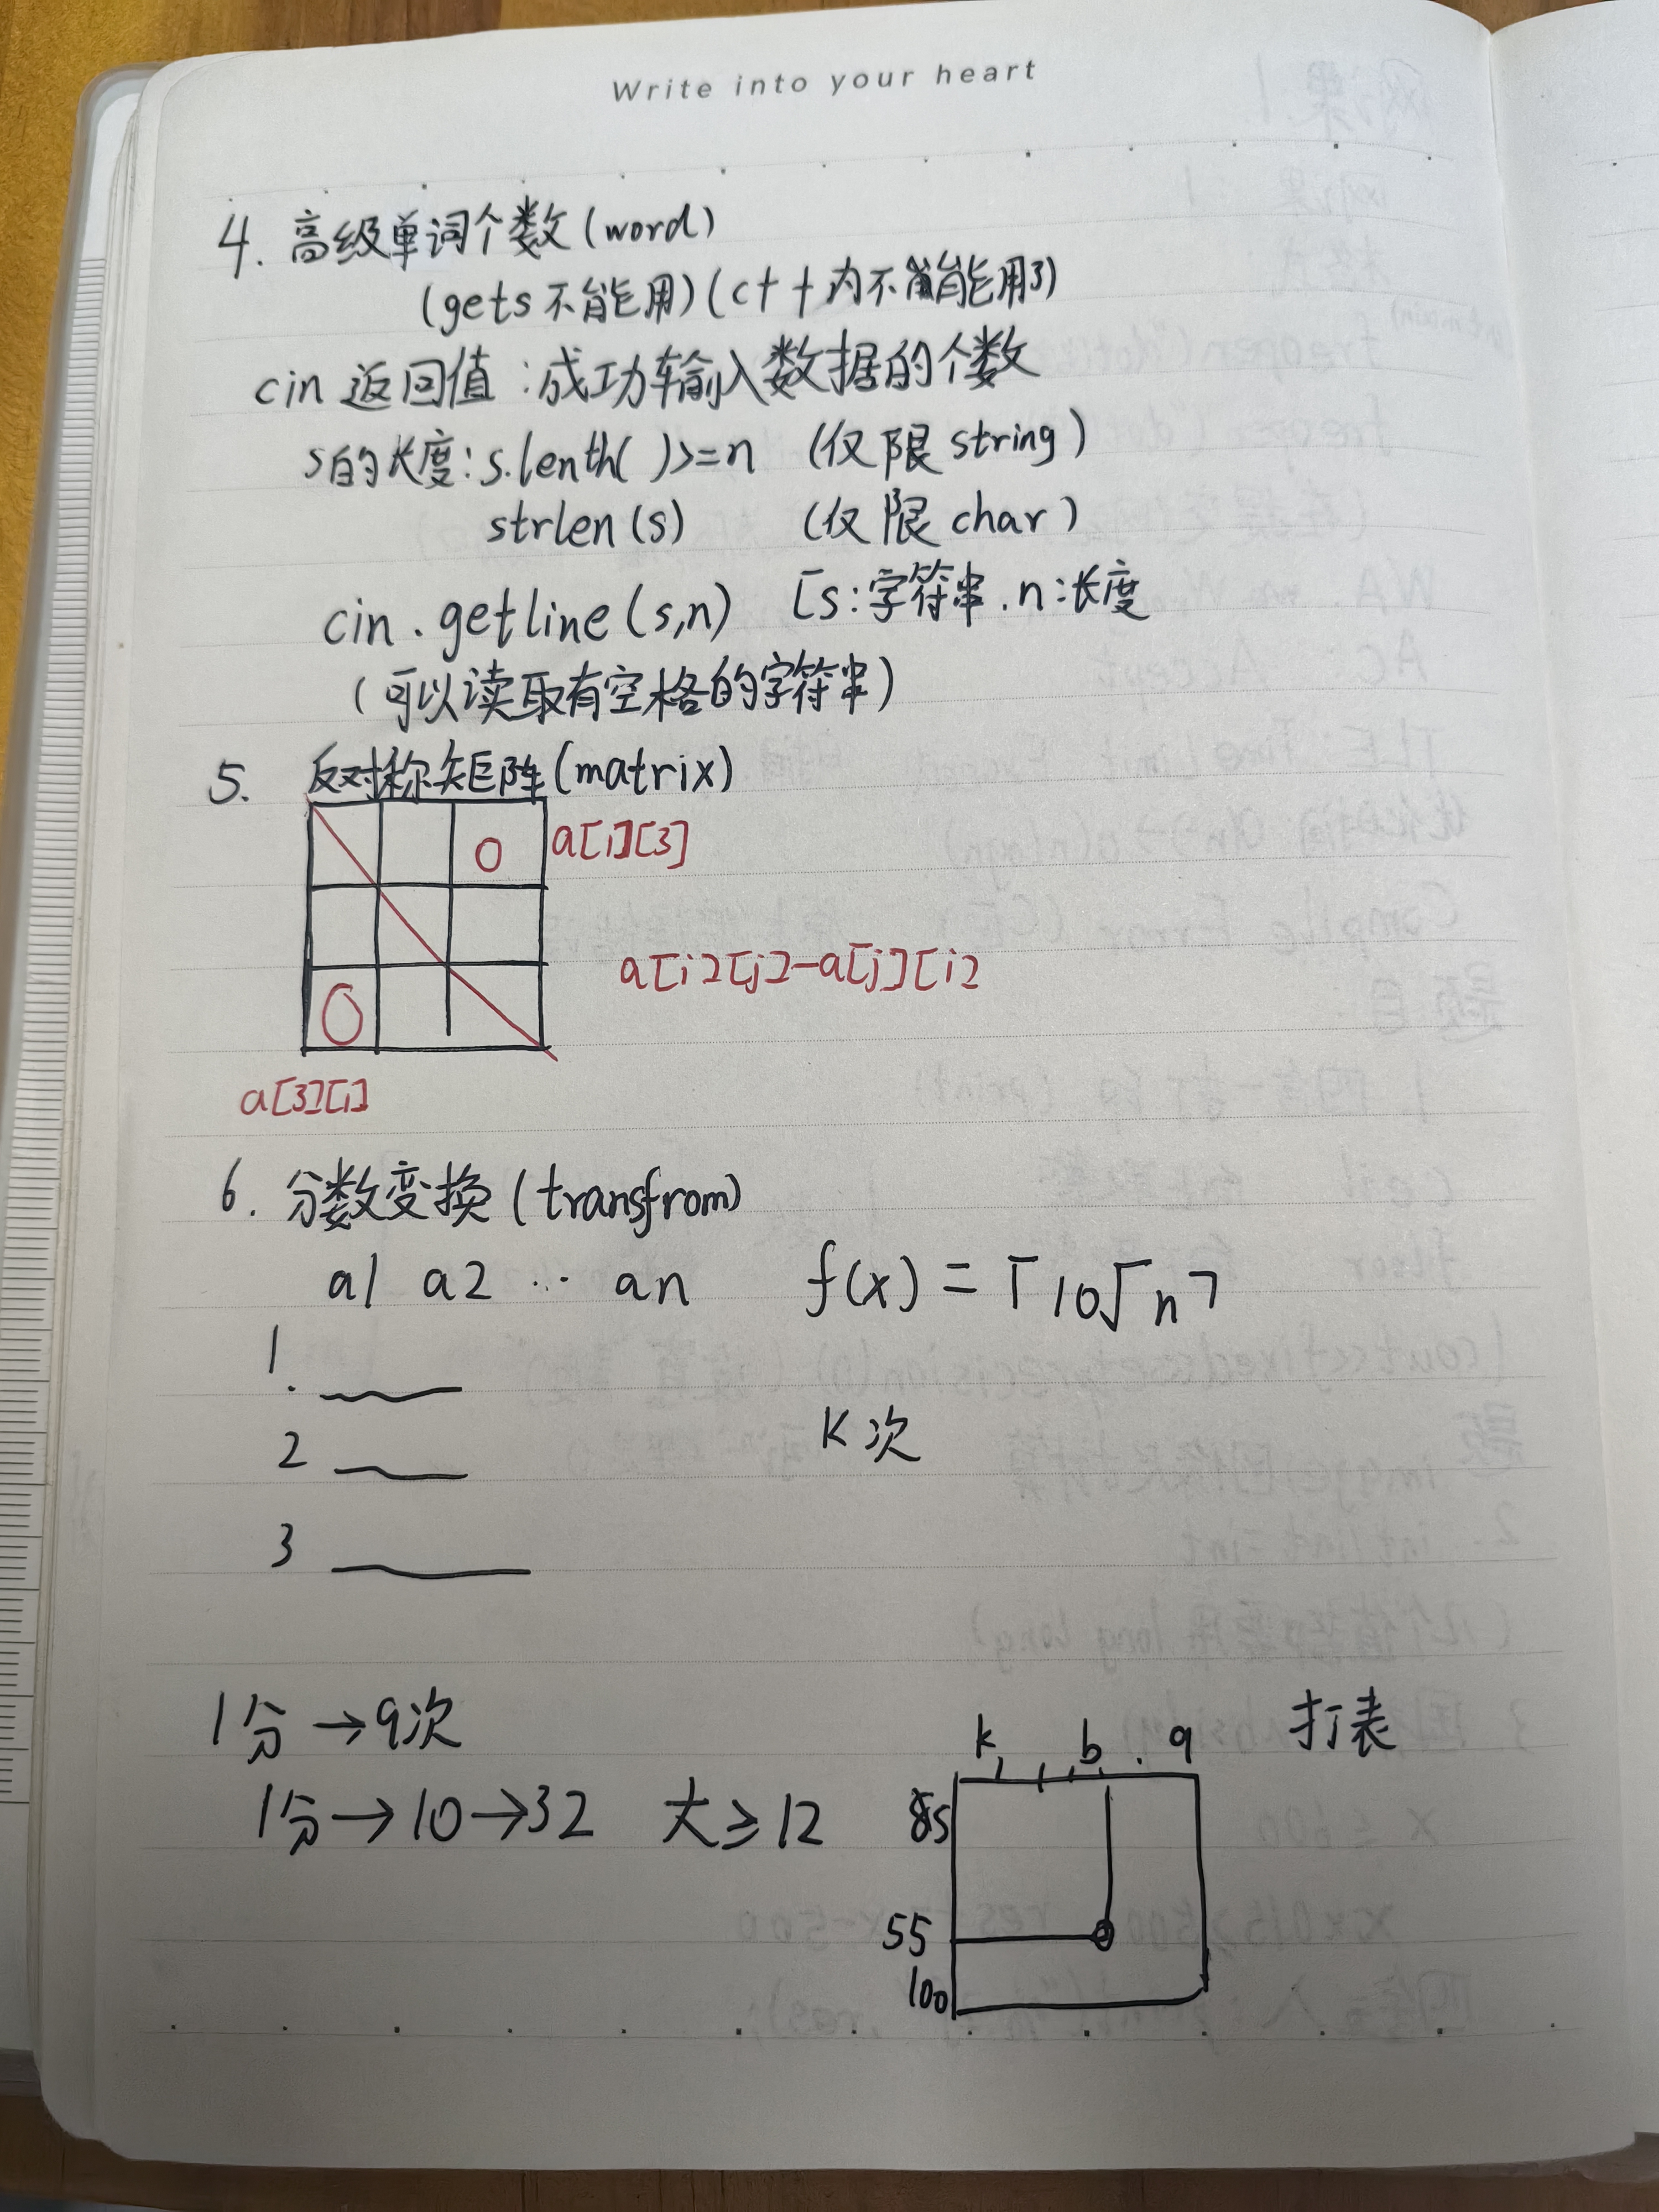 Write into your heart
4. 高级单词个数(word)
(gets 不能用)(c++内不能用了)
cin 返回值:成功输入数据的个数
s的长度:s.lenth( )>=n (仅限 string)
strlen(s) (仅限 char)
cin.getline(s,n) [s:字符串.n:长度
(可以读取有空格的字符串)
5. 反对称矩阵(matrix)
0 a[1][3]
a[i][j]-a[j][i]
0
a[3][1]
6. 分数变换(transfrom)
a1 a2 … an f(x)=「10√n7
1.
2 K次
3
1分→9次 k b . 9 打表
1分→10→32 大≥12 85
55
100